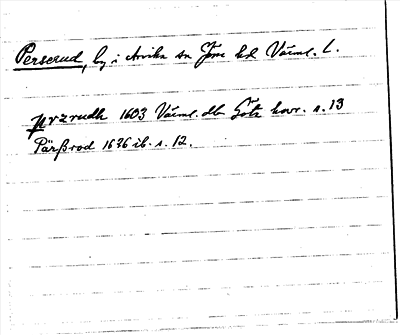 Perserud, by i Arvika sn Jösse hd Värml. l.
przrudh 1603 Värml. dbr Götz hovr. s. 13
Pärßrod 1636 ib. s. 12.